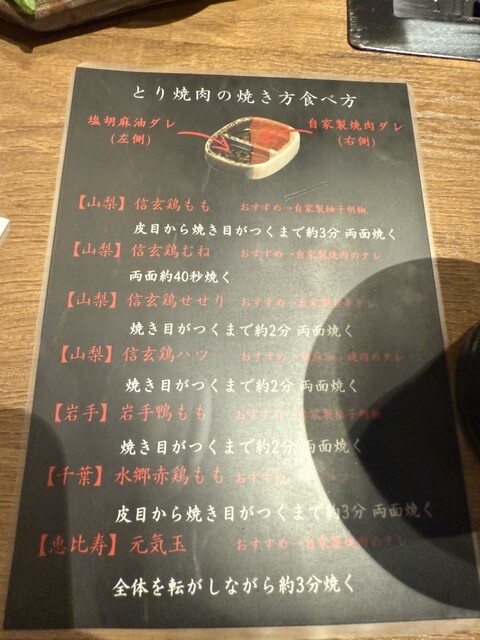 とり焼肉の焼き方食べ方
塩胡麻油ダレ
(左側)
自家製焼肉ダレ
(右側)
【山梨】信玄鶏もも おすすめ→自家製柚子胡椒
皮目から焼き目がつくまで約3分 両面焼く
【山梨】信玄鶏むね おすすめ→自家製焼肉のタレ
両面約40秒焼く
【山梨】信玄鶏せせり おすすめ→自家製
焼き目がつくまで約2分 両面焼く
【山梨】信玄鶏ハツ おすすめ 焼肉のタレ
焼き目がつくまで約2分 両面焼く
【岩手】岩手鴨もも おすすめ→自家製柚子胡椒
焼き目がつくまで約2分 両面焼く
【千葉】水郷赤鶏もも おすすめ
皮目から焼き目がつくまで約3分 両面焼く
【恵比寿】元気玉 おすすめ→自家製焼肉のタレ
全体を転がしながら約3分焼く